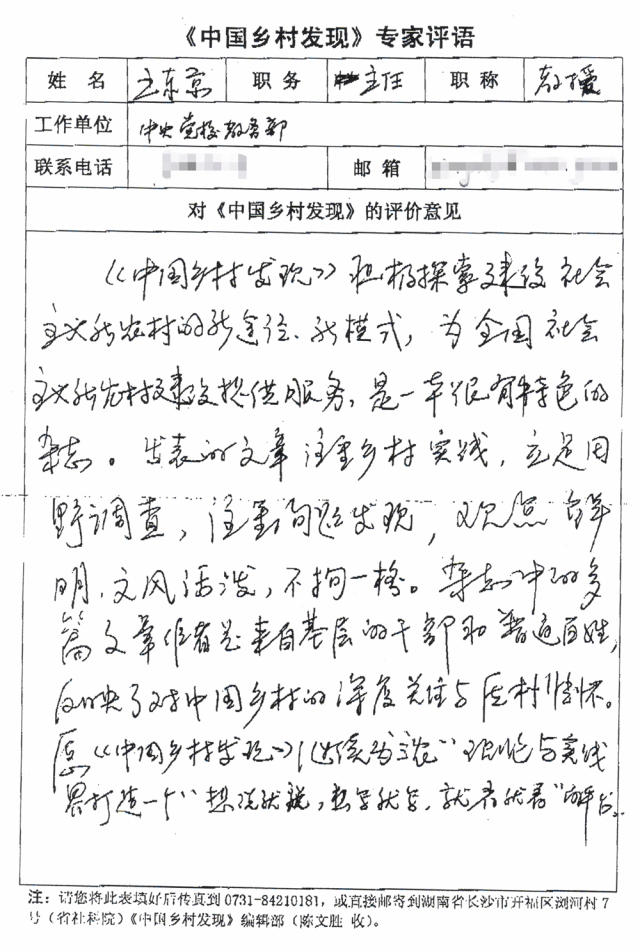 《中国乡村发现》专家评语
姓 名 王东京 职 务 主任 职 称 教授
工作单位 中央党校教务部
联系电话 邮 箱
对《中国乡村发现》的评价意见
《中国乡村发现》积极探索建设社会
主义新农村的新途径、新模式，为全国社会
主义新农村建设提供服务，是一本很有特色的
杂志。发表的文章注重乡村实践，立足田
野调查，注重问题发现，观点鲜
明，文风活泼，不拘一格。杂志中的多
篇文章作者是来自基层的干部和普通百姓，
反映了对中国乡村的深度关注与农村情怀。
愿《中国乡村发现》继续为 理论与实践
界打造一个“想说就说，想写就写，就看就看”的平台。
注：请您将此表填好后传真到 0731-84210181，或直接邮寄到湖南省长沙市开福区浏河村 7
号（省社科院）《中国乡村发现》编辑部（陈文胜 收）。